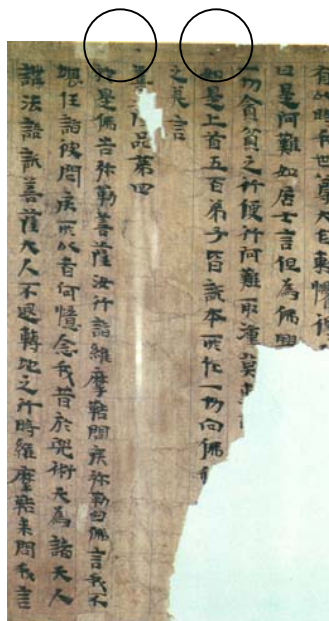 時我世尊大自慚懼
曰是阿難如居士言但為佛興
一切貪貧之行便行阿難取湩莫
如是上首五百弟子皆說本所作一切向佛
之美言
品第四
於是佛告弥勒菩薩汝行詣維摩詰問疾弥勒白佛言我不
堪任詣彼問疾所以者何憶念我昔於兜術天為諸天人
講法語說菩薩大人不退轉地之行時維摩詰來謂我言